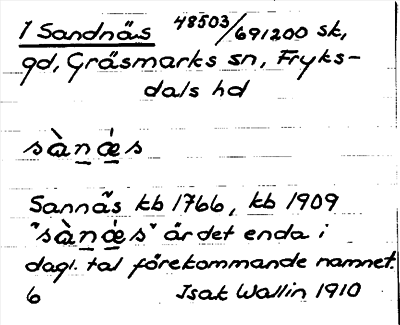 1 Sandnäs 48503/691200 sk,
gd, Gräsmarks sn, Fryks-
dals hd
sàn̲ǽ̲s
Sannäs kb 1766, kb 1909
"sàn̲ǽ̲s" är det enda i
dagl. tal förekommande namnet.
6 Isak Wallin 1910